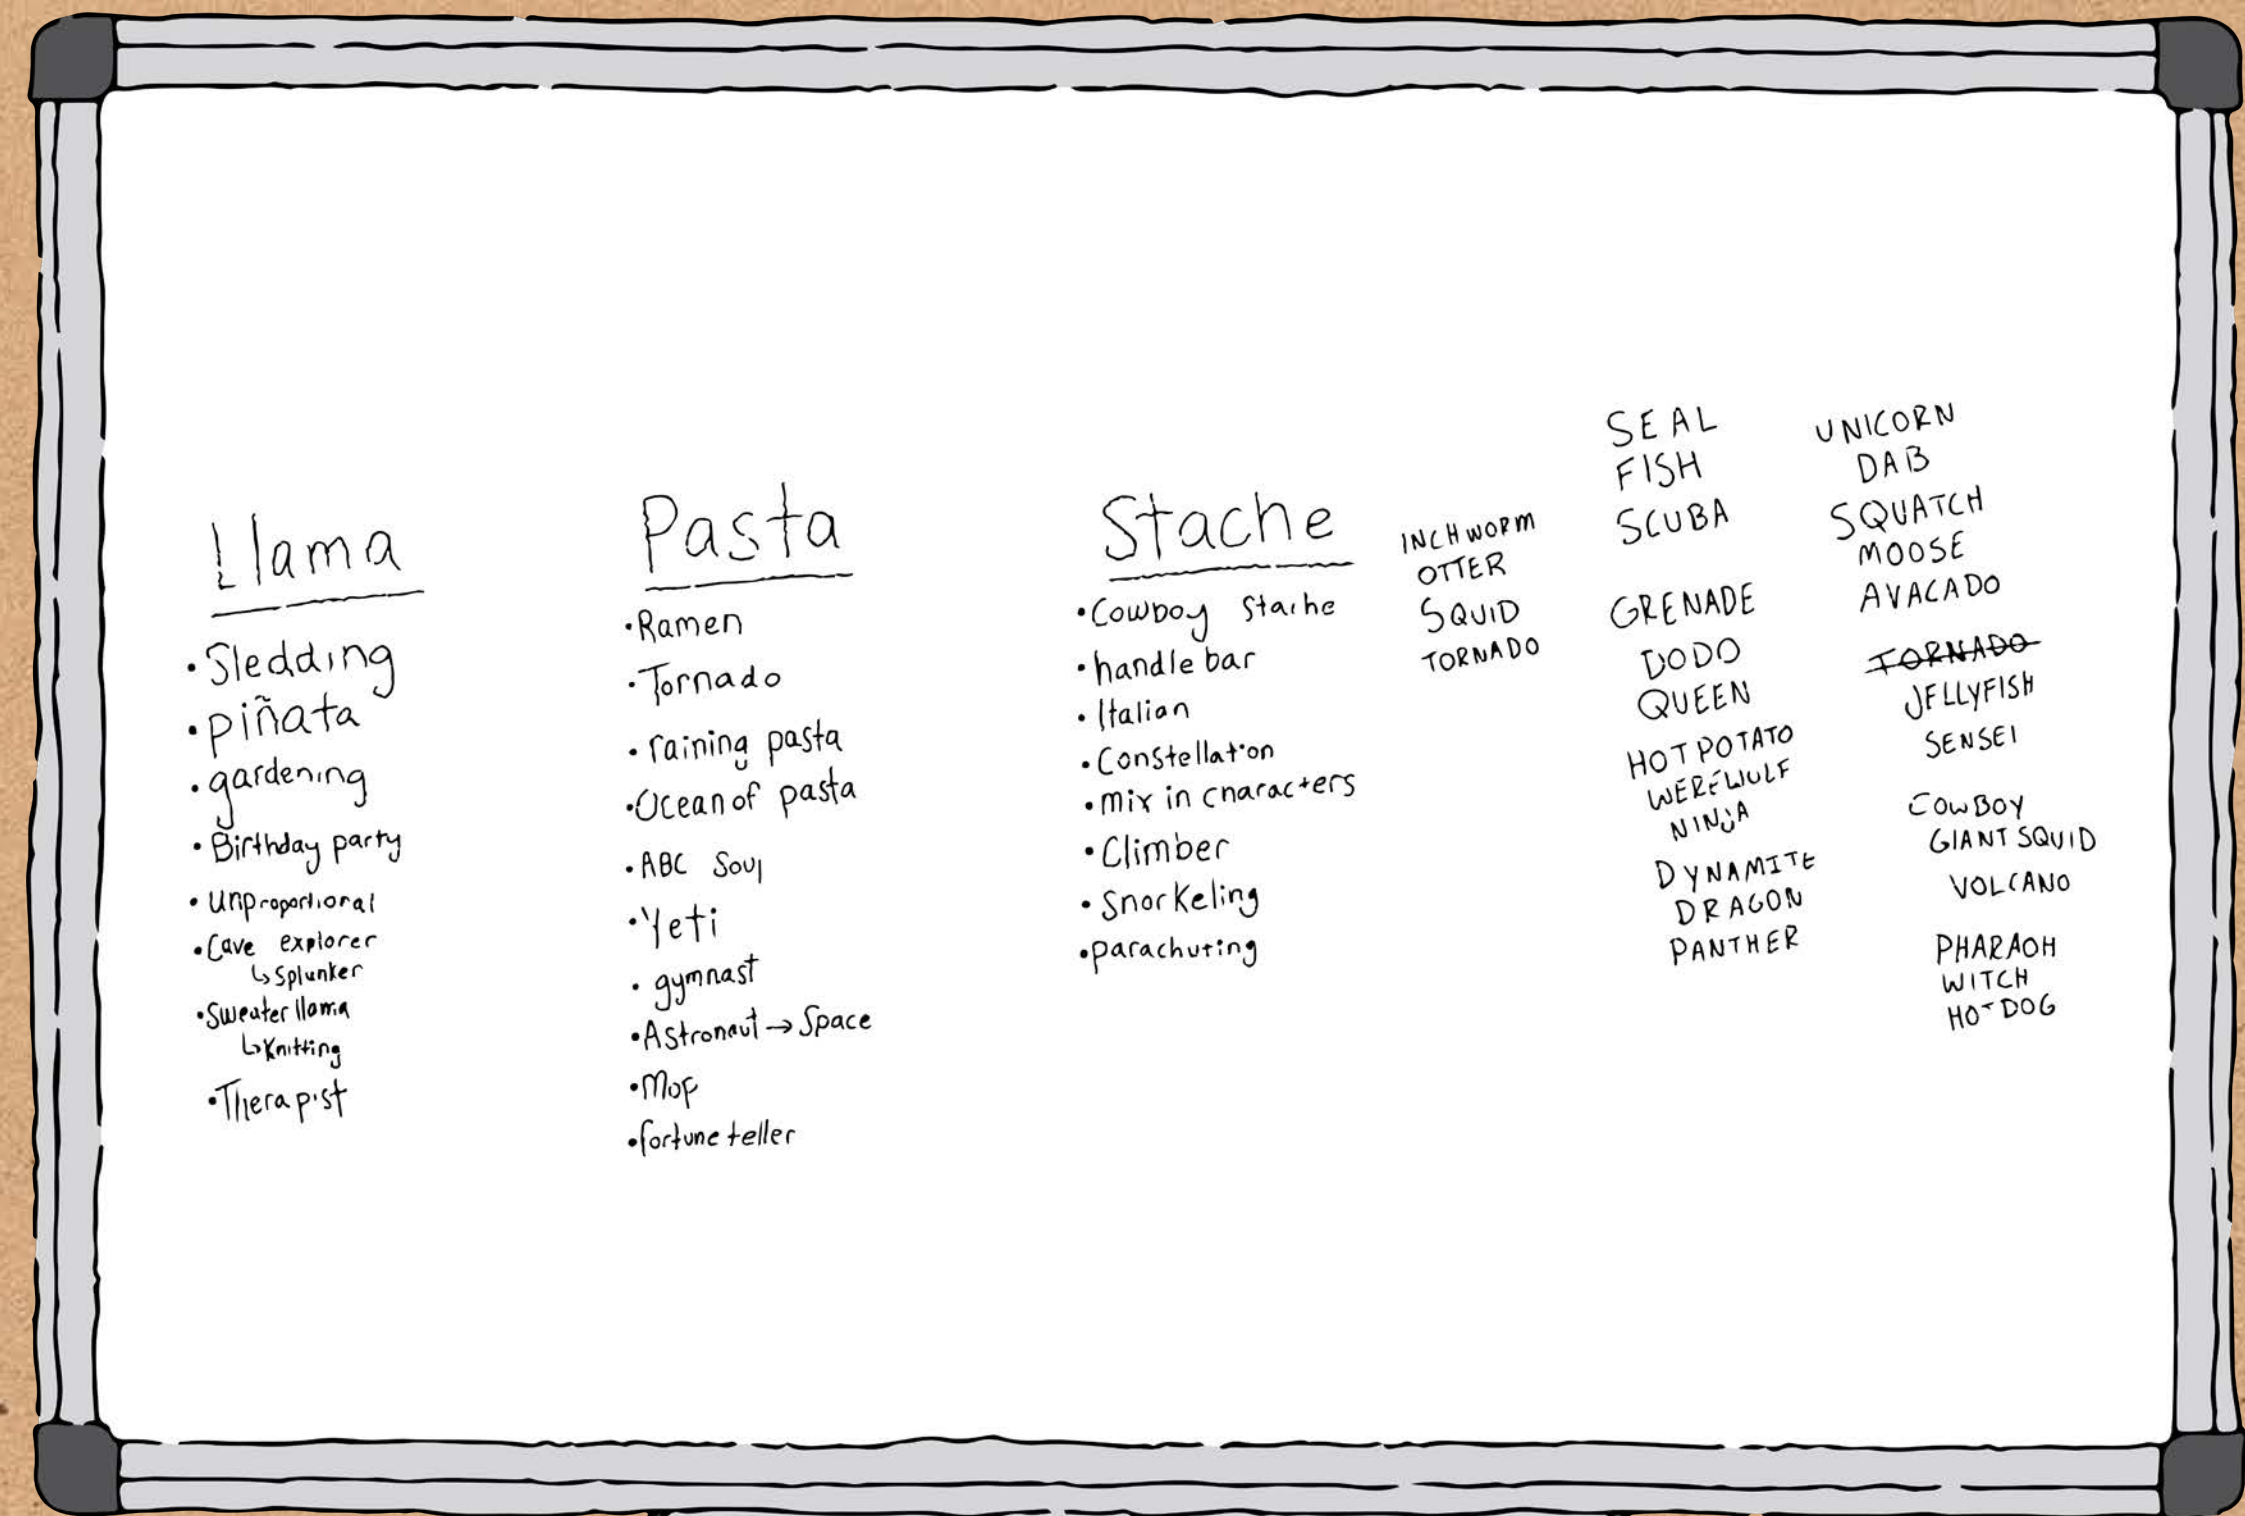 Llama
• Sledding
• piñata
• gardening
• Birthday party
• Unproportional
• Cave explorer
↳ Splunker
• Sweater llama
↳ Knitting
• Therapist
Pasta
• Ramen
• Tornado
• raining pasta
• Ocean of pasta
• ABC Soup
• Yeti
• gymnast
• Astronaut → Space
• Mop
• fortune teller
Stache
• Cowboy Stache
• handle bar
• Italian
• Constellation
• mix in characters
• Climber
• Snorkeling
• parachuting
INCHWORM
OTTER
SQUID
TORNADO
SEAL
FISH
SCUBA
GRENADE
DODO
QUEEN
HOT POTATO
WEREWULF
NINJA
DYNAMITE
DRAGON
PANTHER
UNICORN
DAB
SQUATCH
MOOSE
AVACADO
TORNADO
JELLYFISH
SENSEI
COWBOY
GIANT SQUID
VOLCANO
PHARAOH
WITCH
HOT DOG